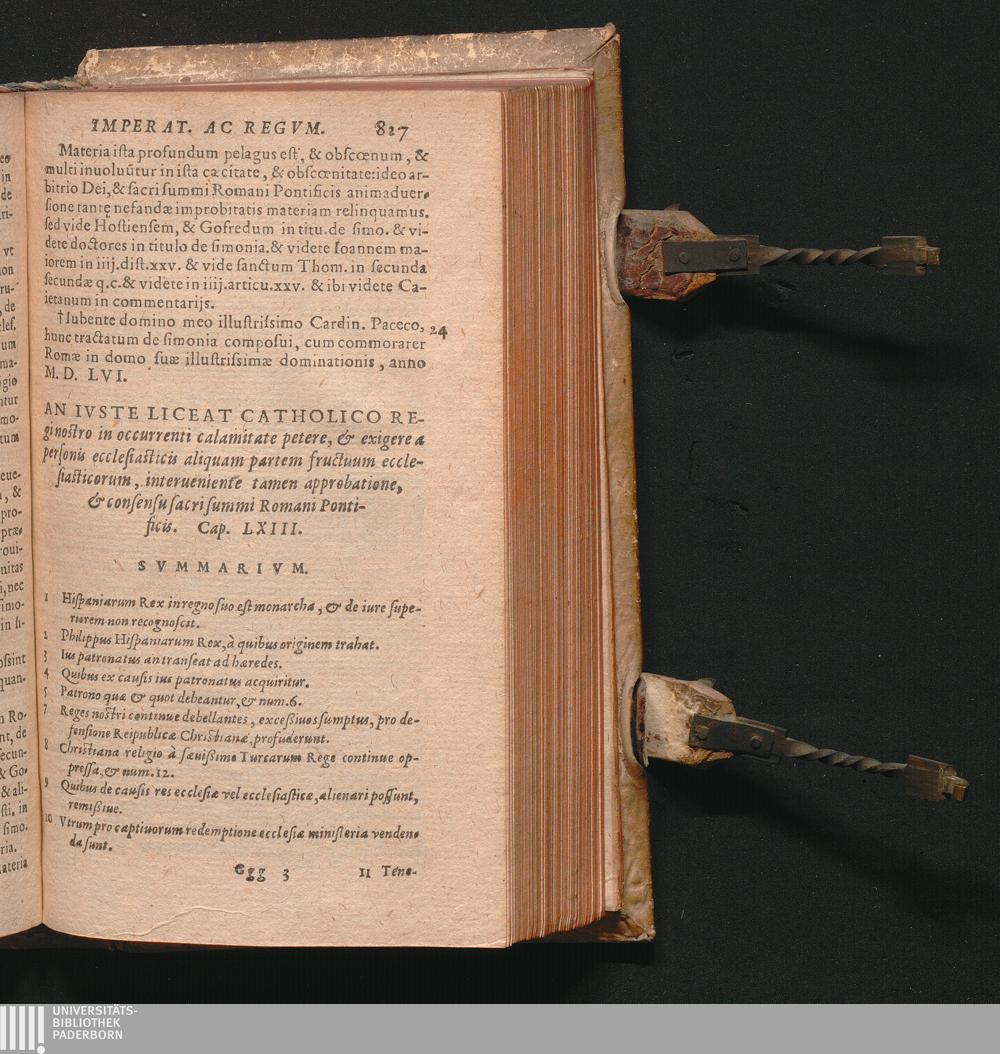 IMPERAT. AC REGVM. 827
Materia iſta profundum pelagus eſt, & obſcœnum, &
multi inuoluũtur in iſta cæcitate, & obſcœnitate: ideo ar-
bitrio Dei, & ſacri ſummi Romani Pontificis animaduer-
ſione tantę nefandæ improbitatis materiam relinquamus.
ſed vide Hoſtienſem, & Gofredum in titu. de ſimo. & vi-
dete doctores in titulo de ſimonia. & videte Ioannem ma-
iorem in iiij. diſt. xxv. & vide ſanctum Thom. in ſecunda
ſecundæ q.c. & videte in iiij. articu. xxv. & ibi videte Ca-
ietanum in commentarijs.
†Iubente domino meo illuſtriſsimo Cardin. Paceco, 24
hunc tractatum de ſimonia compoſui, cum commorarer
Romæ in domo ſuæ illuſtriſsimæ dominationis, anno
M. D. LVI.
AN IVSTE LICEAT CATHOLICO RE-
gi noſtro in occurrenti calamitate petere, & exigere a
perſonis eccleſiaſticis aliquam partem fructuum eccle-
ſiaſticorum, interueniente tamen approbatione,
& conſenſu ſacri ſummi Romani Ponti-
ficis. Cap. LXIII.
SVMMARIVM.
1 Hiſpaniarum Rex in regno ſuo eſt monarcha, & de iure ſupe-
riorem non recognoſcit.
2 Philippus Hiſpaniarum Rex, à quibus originem trahat.
3 Ius patronatus an tranſeat ad hæredes.
4 Quibus ex cauſis ius patronatus acquiritur.
5 Patrono quæ & quot debeantur, & num. 6.
7 Reges noſtri continue debellantes, exceſsiuos ſumptus, pro de-
fenſione Reipublicæ Chriſtianæ, profuderunt.
8 Chriſtiana religio à ſæuiſsimo Turcarum Rege continue op-
preſſa, & num. 12.
9 Quibus de cauſis res eccleſiæ vel eccleſiaſticæ, alienari poſſunt,
remiſsiue.
10 Vtrum pro captiuorum redemptione eccleſiæ miniſteria venden-
da ſunt.
Ggg 3 11 Tene-
UNIVERSITÄTS-
BIBLIOTHEK
PADERBORN